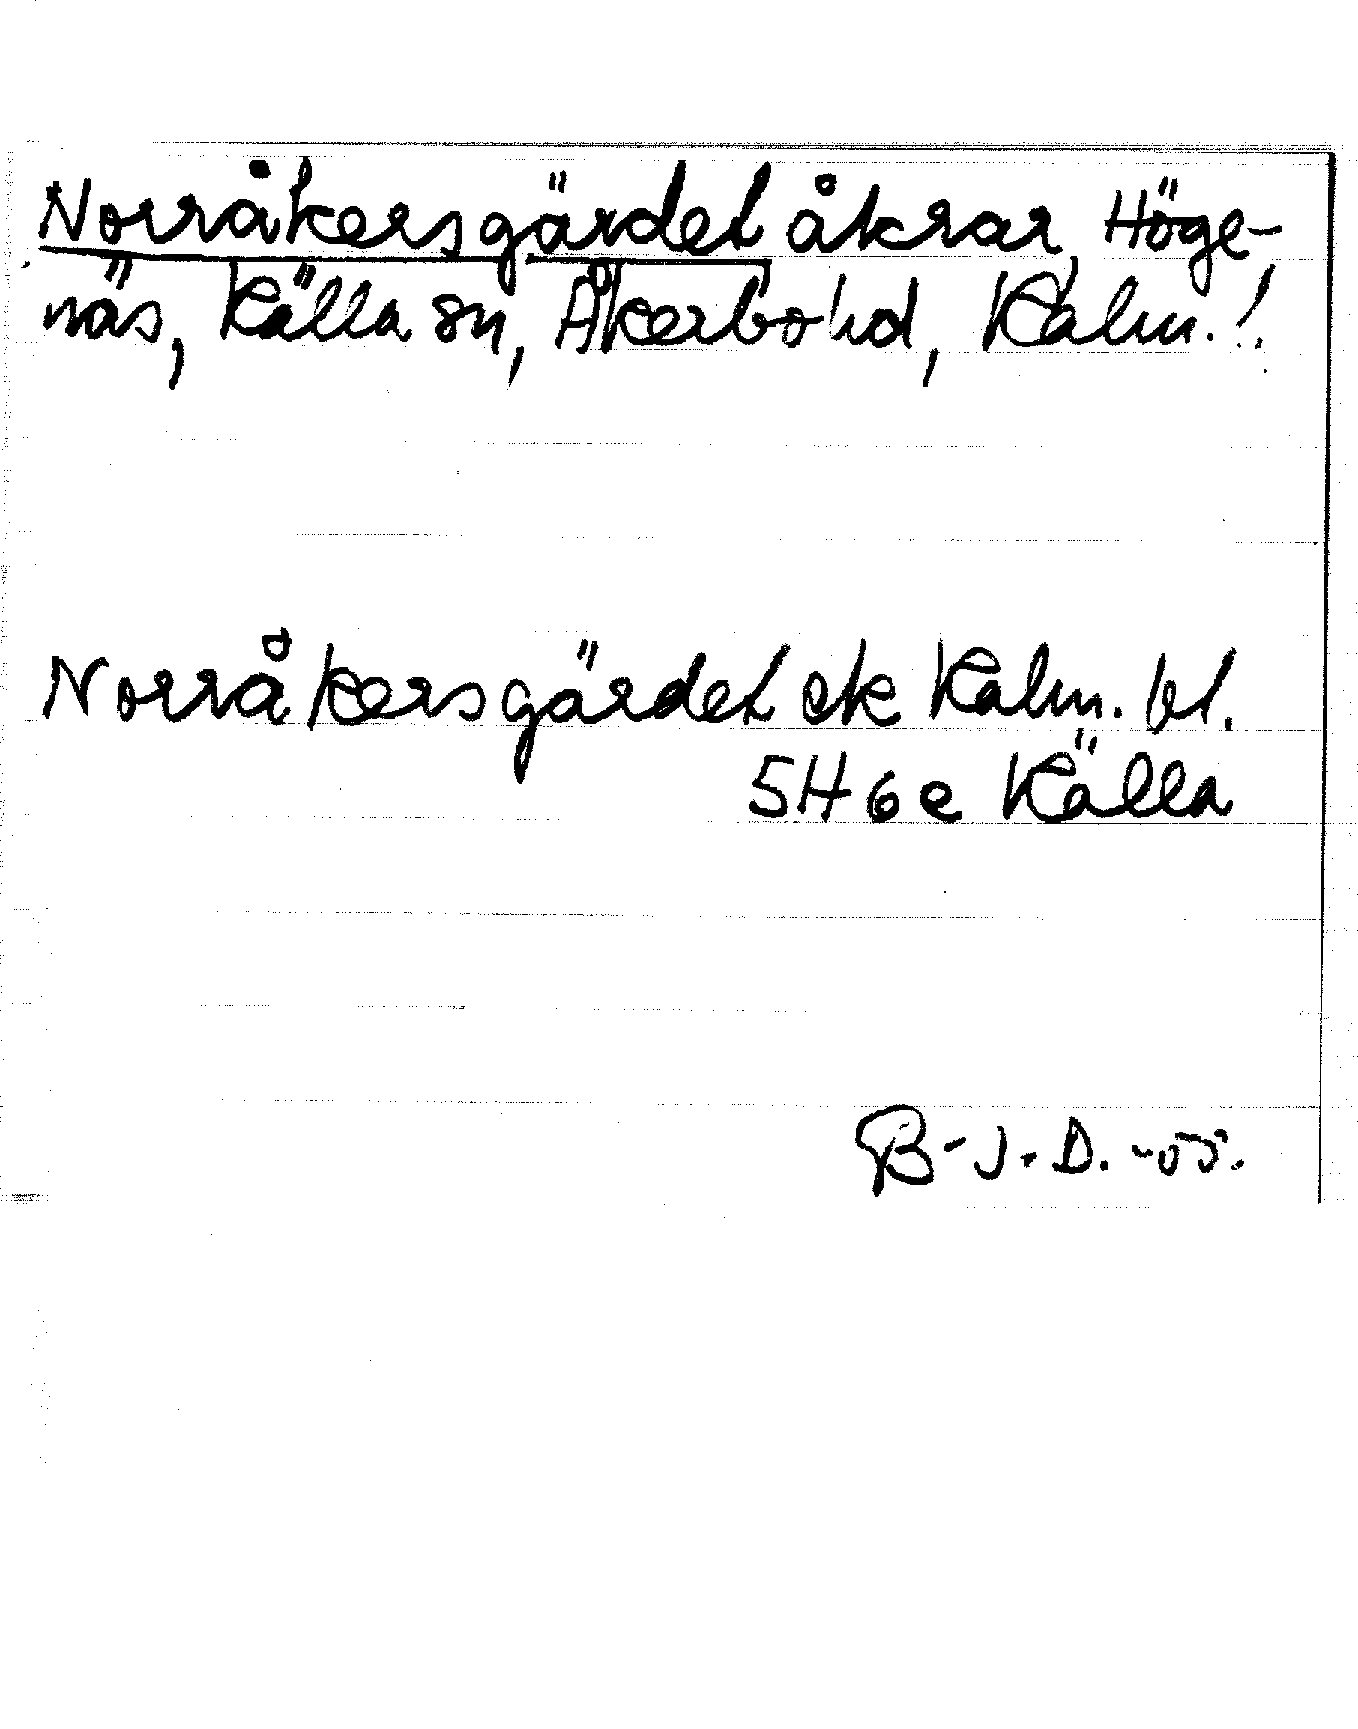 Norråkersgärdet åkrar, Höge-
näs, Källa sn, Åkerbo hd, Kalm. l.
Norråkersgärdet ek Kalm. bl.
5H 6e Källa
B-J. D. -55.